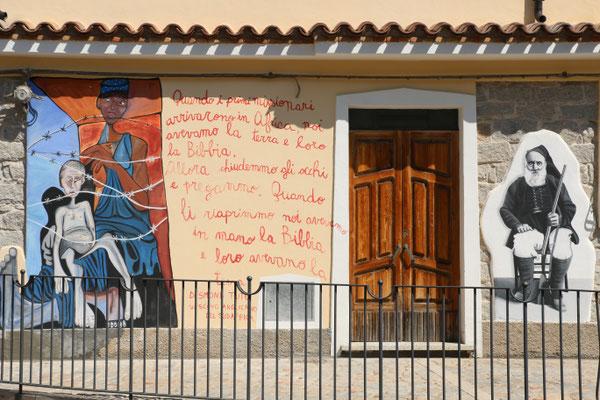 Quando i primi missionari
arrivarono in Africa, noi
avevamo la terra e loro
la Bibbia.
Allora chiudemmo gli occhi
e pregammo. Quando
li riaprimmo noi avevamo
in mano la Bibbia
e loro avevano la
DESMOND TUTU
VESCOVO ANGLICANO
DEL SUDAFRICA